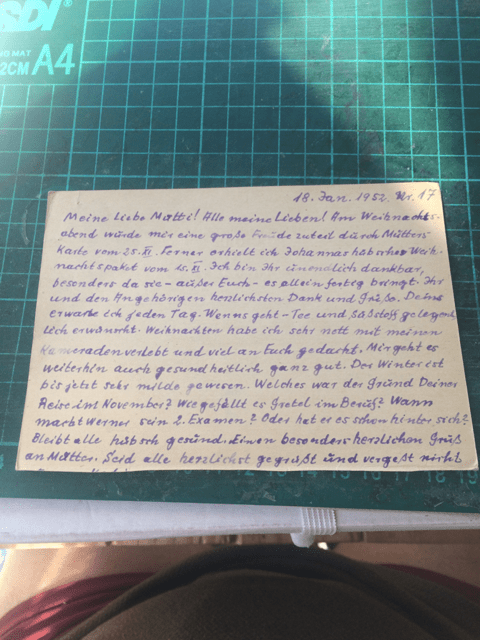 SDI
MAT
2CM A4
18. Jan. 1952. Nr. 17
Meine Liebe Mutti! Alle meine Lieben! Am Weihnachts-
abend wurde mir eine große Freude zuteil durch Mutters
Karte vom 25. XI. Ferner erhielt ich Johannas hübsches Weih-
nachtspaket vom XI. Ich bin Ihr unendlich dankbar,
besonders da sie - außer Euch - es allein fertig bringt. Ihr
und den Angehörigen herzlichsten Dank und Grüße. Deins
erwarte ich jeden Tag. Wenns geht - Tee und Süßstoff gelegent-
lich erwünscht. Weihnachten habe ich sehr nett mit meinen
Kameraden verlebt und viel an Euch gedacht. Mir geht es
weiterhin auch gesundheitlich ganz gut. Der Winter ist
bis jetzt sehr milde gewesen. Welches war der Grund Deiner
Reise im November? Wie gefällt es Gretel im Beruf? Wann
macht Werner sein 2. Examen? Oder hat er es schon hinter sich?
Bleibt alle hübsch gesund. Einen besonders herzlichen Gruß
an Mutter. Seid alle herzlichst gegrüßt und vergeßt nicht
12 13 14 15 16 17 18 19